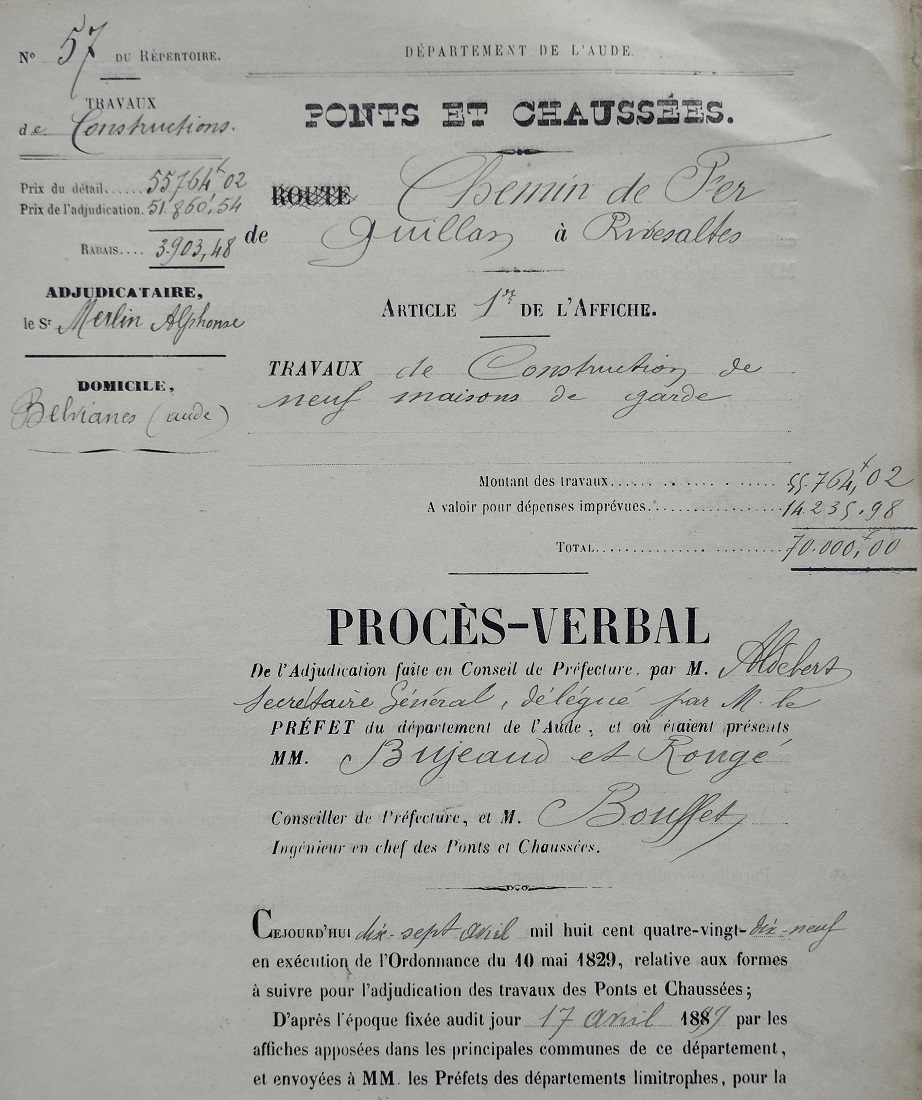 N° 57 DU RÉPERTOIRE.
TRAVAUX
de Constructions.
Prix du détail...... 55.764f,02
Prix de l'adjudication. 51.860,54
RABAIS.... 3.903,48
ADJUDICATAIRE,
le Sr Merlin Alphonse
DOMICILE,
Belvianes (aude)
DÉPARTEMENT DE L'AUDE.
PONTS ET CHAUSSÉES.
ROUTE Chemin de Fer
de Quillan à Rivesaltes
ARTICLE 1er DE L'AFFICHE.
TRAVAUX de Construction de
neuf maisons de garde
Montant des travaux........ 55.764f,02
A valoir pour dépenses imprévues........ 14.235.98
TOTAL........ 70.000f,00
PROCÈS-VERBAL
De l'Adjudication faite en Conseil de Préfecture, par M. Aldebert
Secrétaire Général, délégué par M. le
PRÉFET du département de l'Aude, et où étaient présents
MM. Bujeaud et Rougé
Conseiller de Préfecture, et M. Bouffet
Ingénieur en chef des Ponts et Chaussées.
CEJOURD'HUI dix-sept avril mil huit cent quatre-vingt-dix-neuf
en exécution de l'Ordonnance du 10 mai 1829, relative aux formes
à suivre pour l'adjudication des travaux des Ponts et Chaussées;
D'après l'époque fixée audit jour 17 avril 1899 par les
affiches apposées dans les principales communes de ce département,
et envoyées à MM. les Préfets des départements limitrophes, pour la